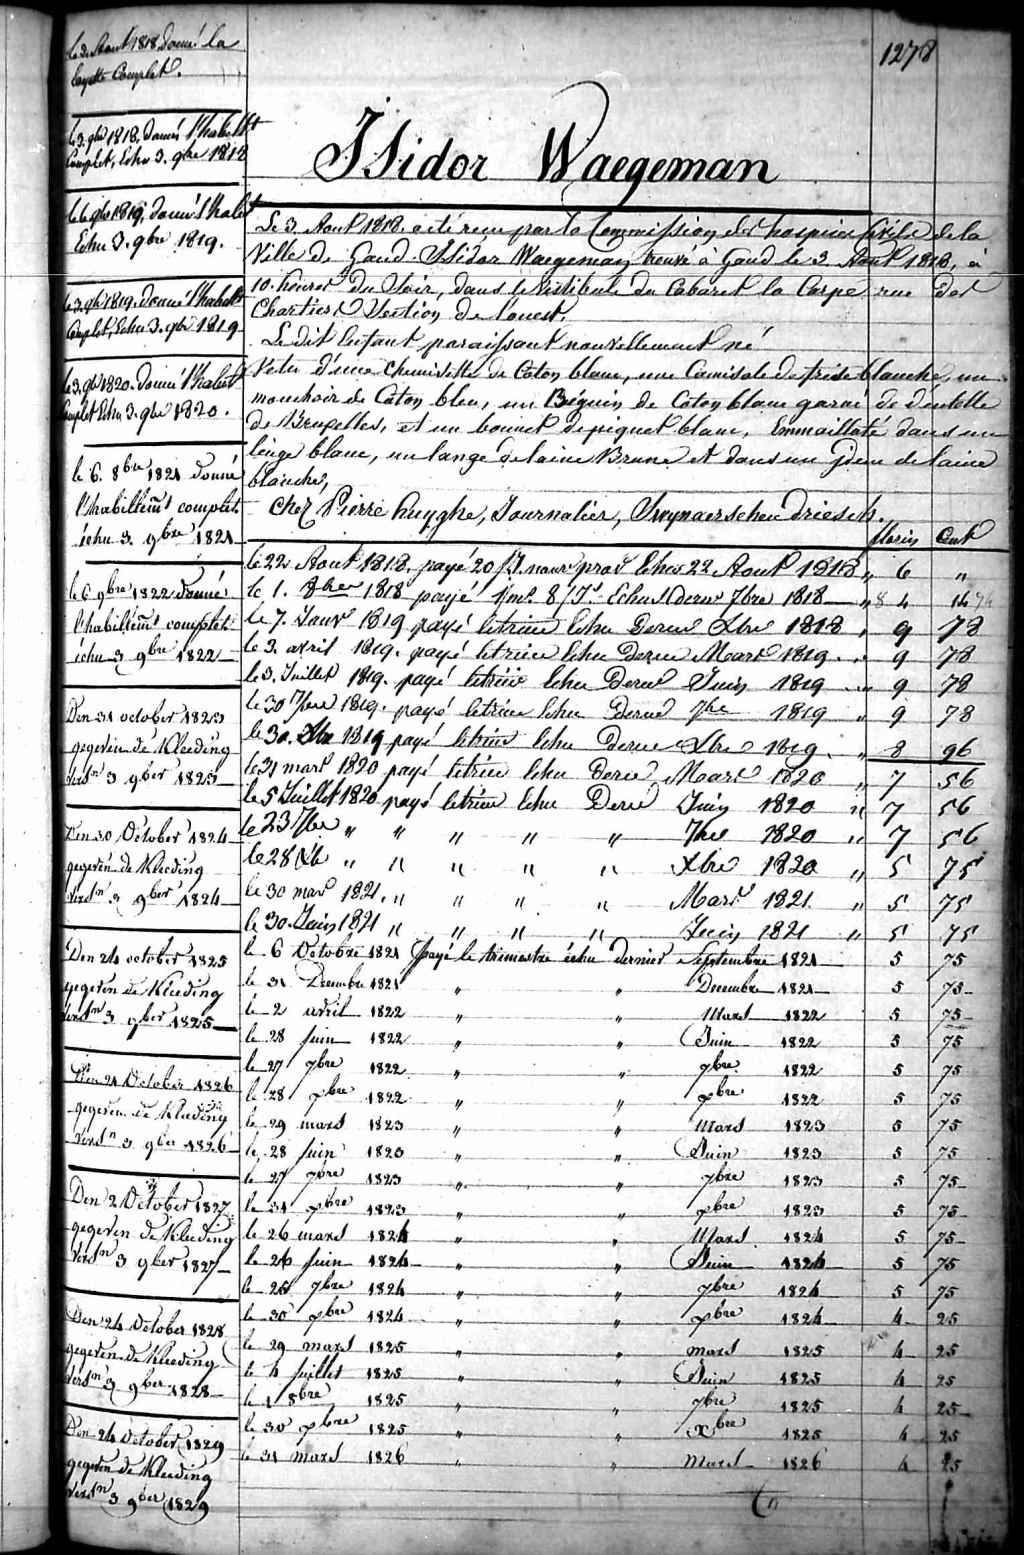 1278
Isidor Waegeman
le 3 Aout 1818 donné la
layette Complet.
le 3. 9bre 1818, donné l'habillt
Complet, Echu 3. 9bre 1818
le 6 9bre 1819, donné l'habit
Echu 3. 9bre 1819.
le 3. 9bre 1819. donné l'habillt
Complet, Echu 3. 9bre 1819
le 3. 9bre 1820. donné l'habillt
Complet Echu 3. 9bre 1820.
le 6. 8bre 1821 donné
l'habillemt complet
échu 3. 9bre 1821
le 6 9bre 1822 donné
l'habillemt complet
échu 3 9bre 1822
Den 31 october 1823
gegeven de Kleeding
versn 3 9ber 1823
Den 30 October 1824
gegeven de Kleeding
versn 3 9ber 1824
Den 24 october 1825
gegeven de Kleeding
versn 3 9ber 1825
Den 21 October 1826
gegeven de Kleeding
versn 3 9ber 1826
Den 2 October 1827
gegeven de Kleeding
versn 3 9ber 1827
Den 24 October 1828
gegeven de Kleeding
versn 3 9ber 1828
Den 24 October 1829
gegeven de Kleeding
versn 3 9ber 1829
Le 3 Aout 1818 a été reçu par la Commission des hospices Civils de la
Ville de Gand. Isidor Waegeman trouvé à Gand le 2 Aout 1818, à
10. heures du Soir, dans le Vestibule du Cabaret la Carpe rue des
Chartiers Section de l'ouest.
Le dit Enfant paraissant nouvellement né
Vetu d'une Chemisette de Coton blanc, une Camisole de frise blanche, un
mouchoir de Coton bleu, un Béguin de Coton blanc garni de dentelle
de Bruxelles, et un bonnet de piquet blanc, Emmailloté dans un
linge blanc, un lange de laine Brune et dans un idem de laine
blanche,
Chez Pierre huyghe, Journalier, Swynaerschen driesch.
florin Cent
le 22 Aout 1818, payé 20 Echu 22 Aout 1818 " 6 "
le 1. 8bre 1818 payé Echu Dernr 7bre 1818 " 4
le 7. Janvr 1819 payé letrim Echu Dernr Xbre 1818 " 9 78
le 3. avril 1819. payé letrim Echu Dernr Mars 1819. " 9 78
le 3. Juillet 1819. payé letrim Echu Dernr Juin 1819 " 9 78
le 30 7bre 1819. payé letrim Echu Dernr 7bre 1819 " 9 78
le 30. Xbre 1819 payé letrim Echu Dernr Xbre 1819. " 8 96
le 31 mars 1820 payé letrim Echu Dernr Mars 1820 " 7 56
le 5 Juillet 1820 payé letrim Echu Dernr Juin 1820 " 7 56
le 23 7bre " " " " " 7bre 1820 " 7 56
le 28 Xb " " " " " Xbre 1820 " 5 75
le 30 mars 1821. " " " " Mars 1821. " 5 75
le 30. Juin 1821 " " " " Juin 1821 " 5 75
le 6 Octobre 1821 payé le trimestre échu dernier Septembre 1821 5 75
le 31 Decembre 1821 " " Decembre 1821 5 75
le 2 avril 1822 " " Mars 1822 5 75
le 28 juin 1822 " " Juin 1822 5 75
le 27 7bre 1822 " " 7bre 1822 5 75
le 28 xbre 1822 " " xbre 1822 5 75
le 29 mars 1823 " " Mars 1823 5 75
le 28 juin 1823 " " Juin 1823 5 75
le 27 7bre 1823 " " 7bre 1823 5 75
le 31 xbre 1823 " " xbre 1823 5 75
le 26 mars 1824 " " Mars 1824 5 75
le 26 juin 1824 " " Juin 1824 5 75
le 25 7bre 1824 " " 7bre 1824 5 75
le 30 xbre 1824 " " xbre 1824 4 25
le 29 mars 1825 " " mars 1825 4 25
le 4 juillet 1825 " " Juin 1825 4 25
le 1 8bre 1825 " " 7bre 1825 4 25
le 30 xbre 1825 " " xbre 1825 4 25
le 31 mars 1826 " " Mars 1826 4 25